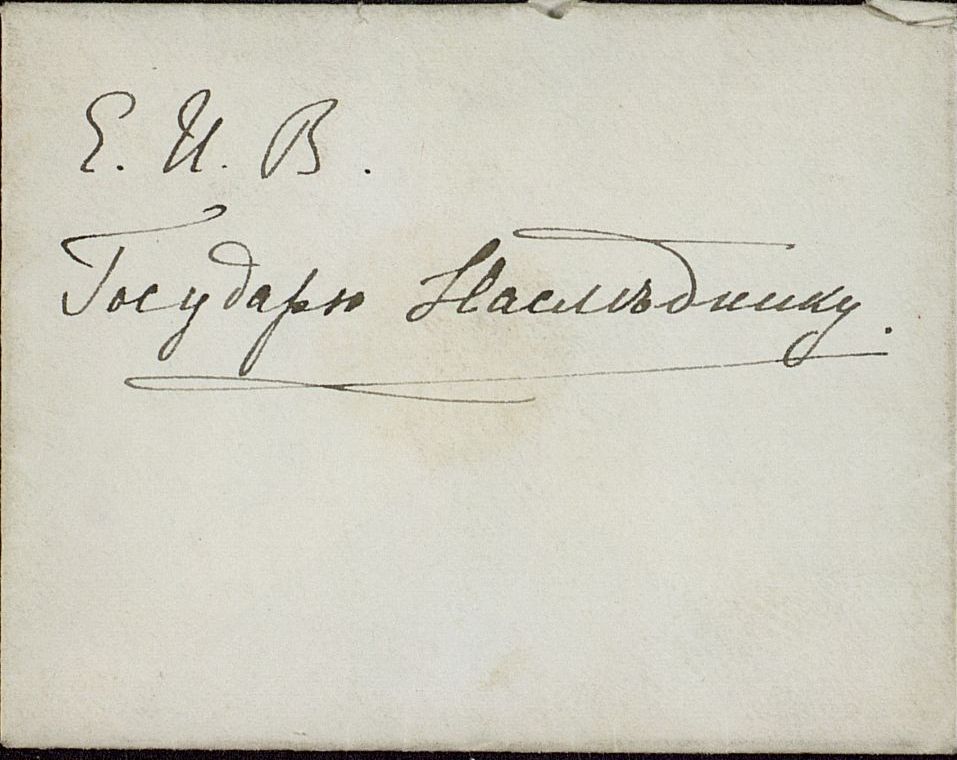 Е. И. В.
Государю Наслѣднику.